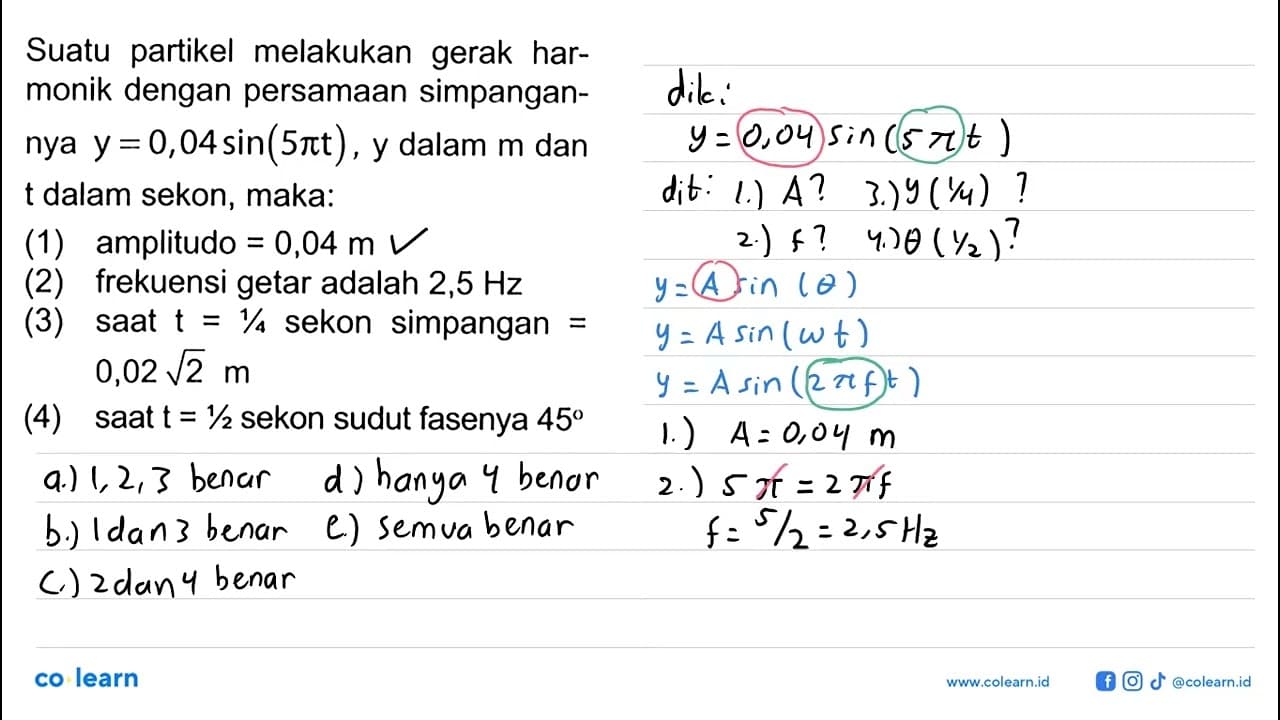 Suatu partikel melakukan gerak har-
monik dengan persamaan simpangan-
nya y = 0,04 sin(5πt), y dalam m dan
t dalam sekon, maka:
(1) amplitudo = 0,04 m ✓
(2) frekuensi getar adalah 2,5 Hz
(3) saat t = ¼ sekon simpangan =
0,02 √2 m
(4) saat t = ½ sekon sudut fasenya 45º
a.) 1, 2, 3 benar d) hanya 4 benar
b.) 1 dan 3 benar e.) semua benar
c.) 2 dan 4 benar
dik:
y = 0,04 sin (5 π t )
dit: 1.) A? 3.) y (¼) ?
2.) f? 4.) θ (½)?
y = A sin (θ)
y = A sin (ω t)
y = A sin (2 π f t )
1.) A = 0,04 m
2.) 5 π = 2 π f
f = 5/2 = 2,5 Hz
co learn
www.colearn.id @colearn.id